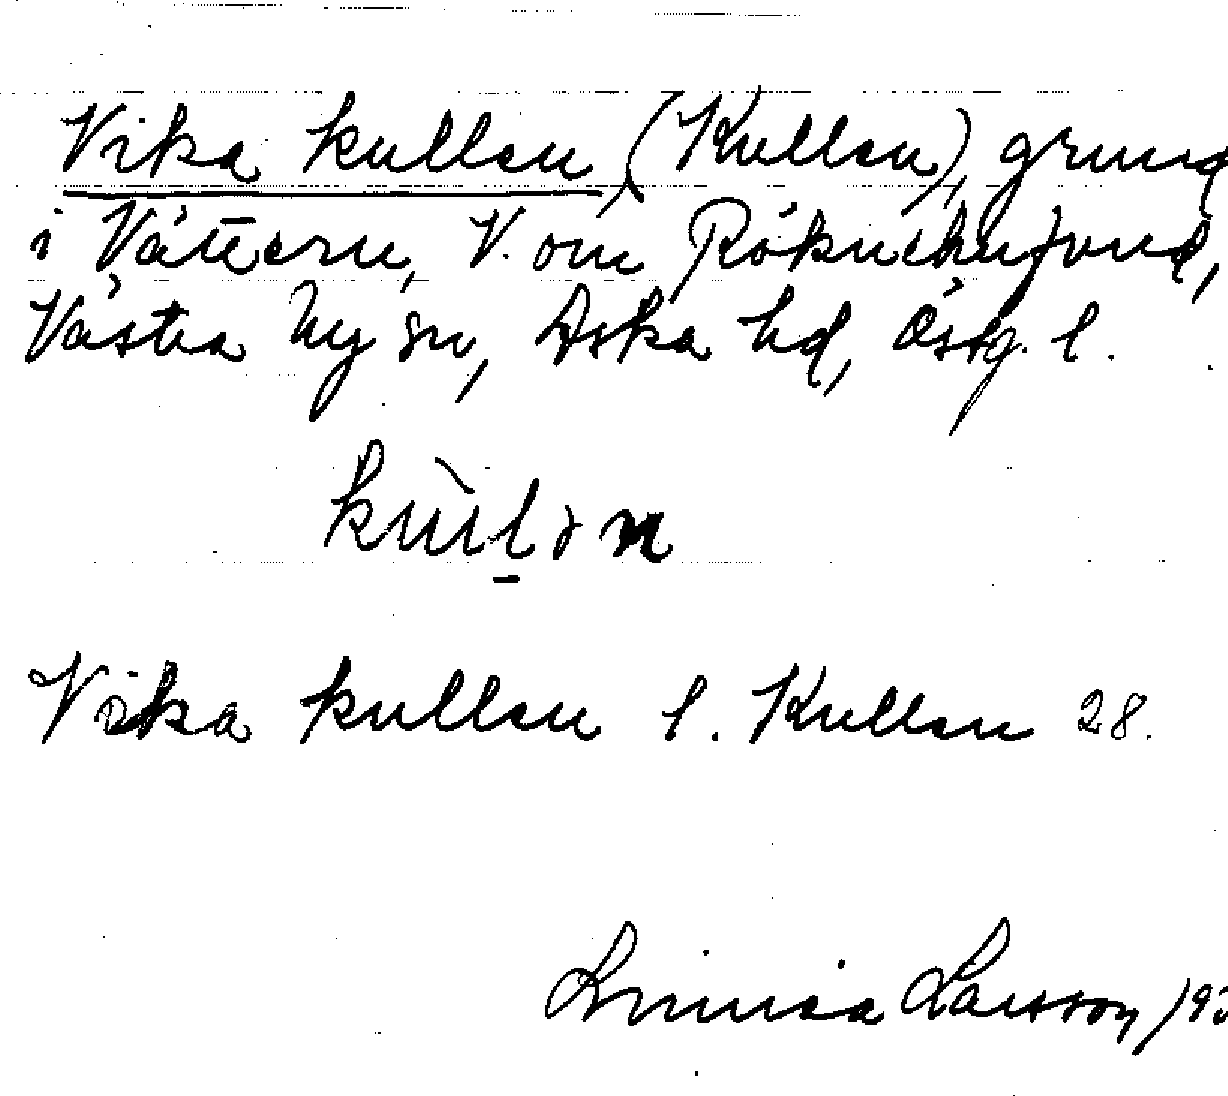 Vika kullen, (Kullen), grund
i Vättern, V. om Röknehufvud,
Västra Ny sn, Aska hd, Östg. l.
kùḷən
Vika kullen l. Kullen 28.
Linnea Larsson, 193